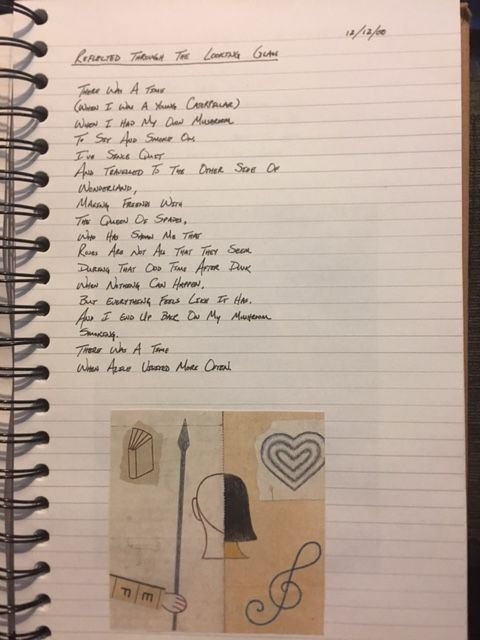 12/12/00
REFLECTED THROUGH THE LOOKING GLASS
THERE WAS A TIME
(WHEN I WAS A YOUNG CATERPILLAR)
WHEN I HAD MY OWN MUSHROOM
TO SIT AND SMOKE ON.
I'VE SINCE QUIT
AND TRAVELLED TO THE OTHER SIDE OF
WONDERLAND,
MAKING FRIENDS WITH
THE QUEEN OF SPADES,
WHO HAS SHOWN ME THAT
ROSES ARE NOT ALL THAT THEY SEEM
DURING THAT ODD TIME AFTER DUSK
WHEN NOTHING CAN HAPPEN,
BUT EVERYTHING FEELS LIKE IT HAS.
AND I END UP BACK ON MY MUSHROOM
SMOKING.
THERE WAS A TIME
WHEN ALICE VISITED MORE OFTEN.
F E